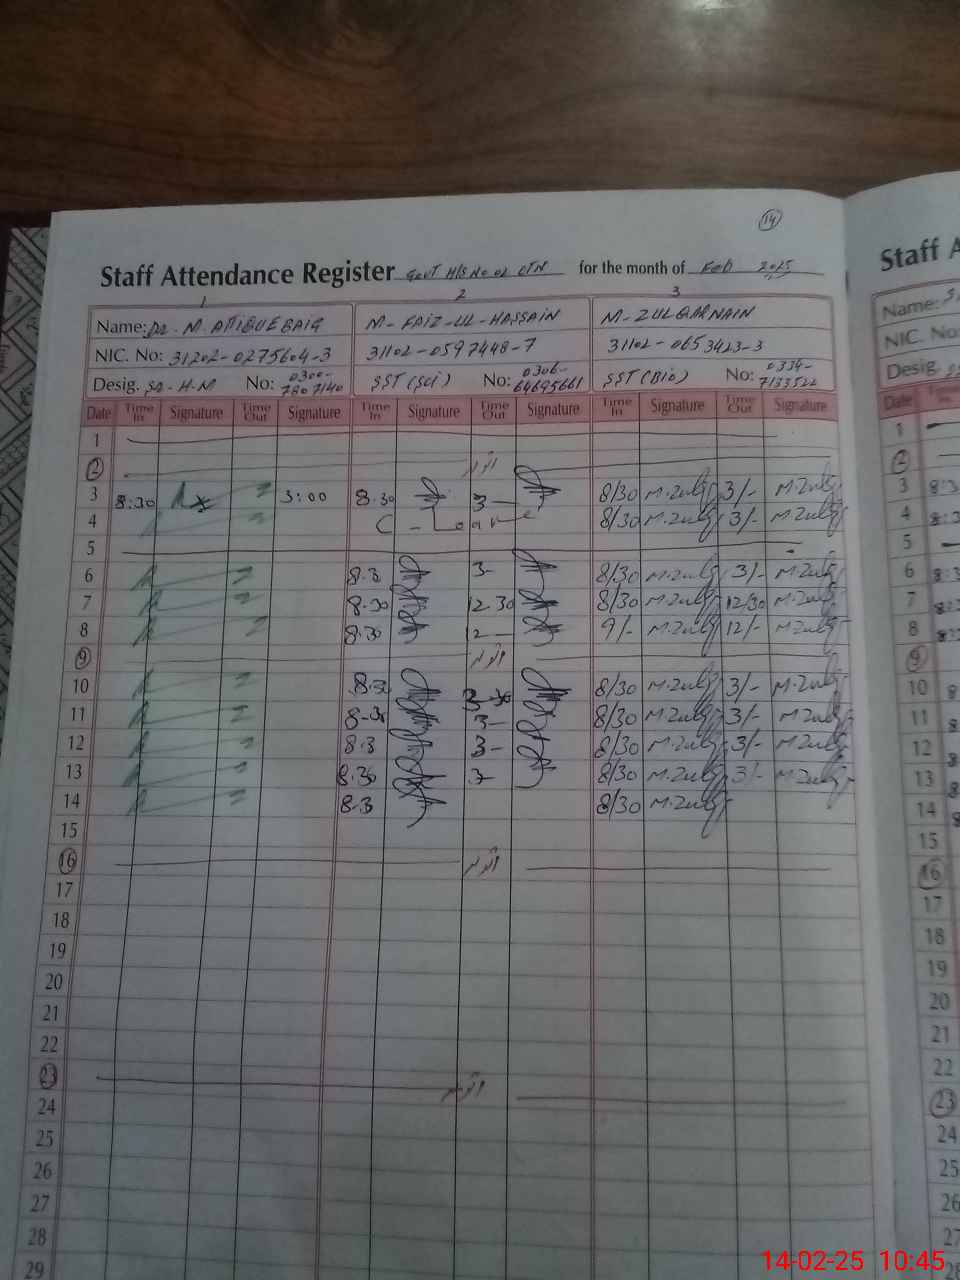 14
Staff Attendance Register Govt H/S No 02 CTN for the month of Feb 2025
1 2 3
Name: Dr. M. ATIQUE BAIG M-FAIZ-UL-HASSAIN M-ZULQARNAIN
NIC. No: 31202-0275604-3 31102-0597448-7 31102-0653423-3
Desig. No: 0300-7807140 SST (Sci) No: 0306-64695661 SST (Bio) No: 0334-
Date Time In Signature Time Out Signature Time In Signature Time Out Signature Time In Signature Time Out Signature
1
2 اتوار
3 8:30 3:00 8.30 3- 8/30 M.Zulq 3/- M.Zulq
4 C-Leave 8/30 M.Zulq 3/- M.Zulq
5
6 8.3 3- 8/30 M.Zulq 3/- M.Zulq
7 8.30 12 30 8/30 M.Zulq 12/30 M.Zulq
8 8.30 12- 9/- M.Zulq 12/- M.Zulq
9 اتوار
10 8.30 8/30 M.Zulq 3/- M.Zulq
11 8-30 3- 8/30 M.Zulq 3/- M.Zulq
12 8.3 3- 8/30 M.Zulq 3/- M.Zulq
13 8.30 3- 8/30 M.Zulq 3/- M.Zulq
14 8.3 8/30 M.Zulq
15
16 اتوار
17
18
19
20
21
22
23 اتوار
24
25
26
27
28
29
Staff A
Name:
NIC. No:
Desig.
Date Time In
1
2
3 8:3
4 8:
5
6 8:3
7 8:3
8 8:3
9
10 8
11 8
12 8
13 8
14 8
15
16
17
18
19
20
21
22
23
24
25
26
27
28
14-02-25 10:45